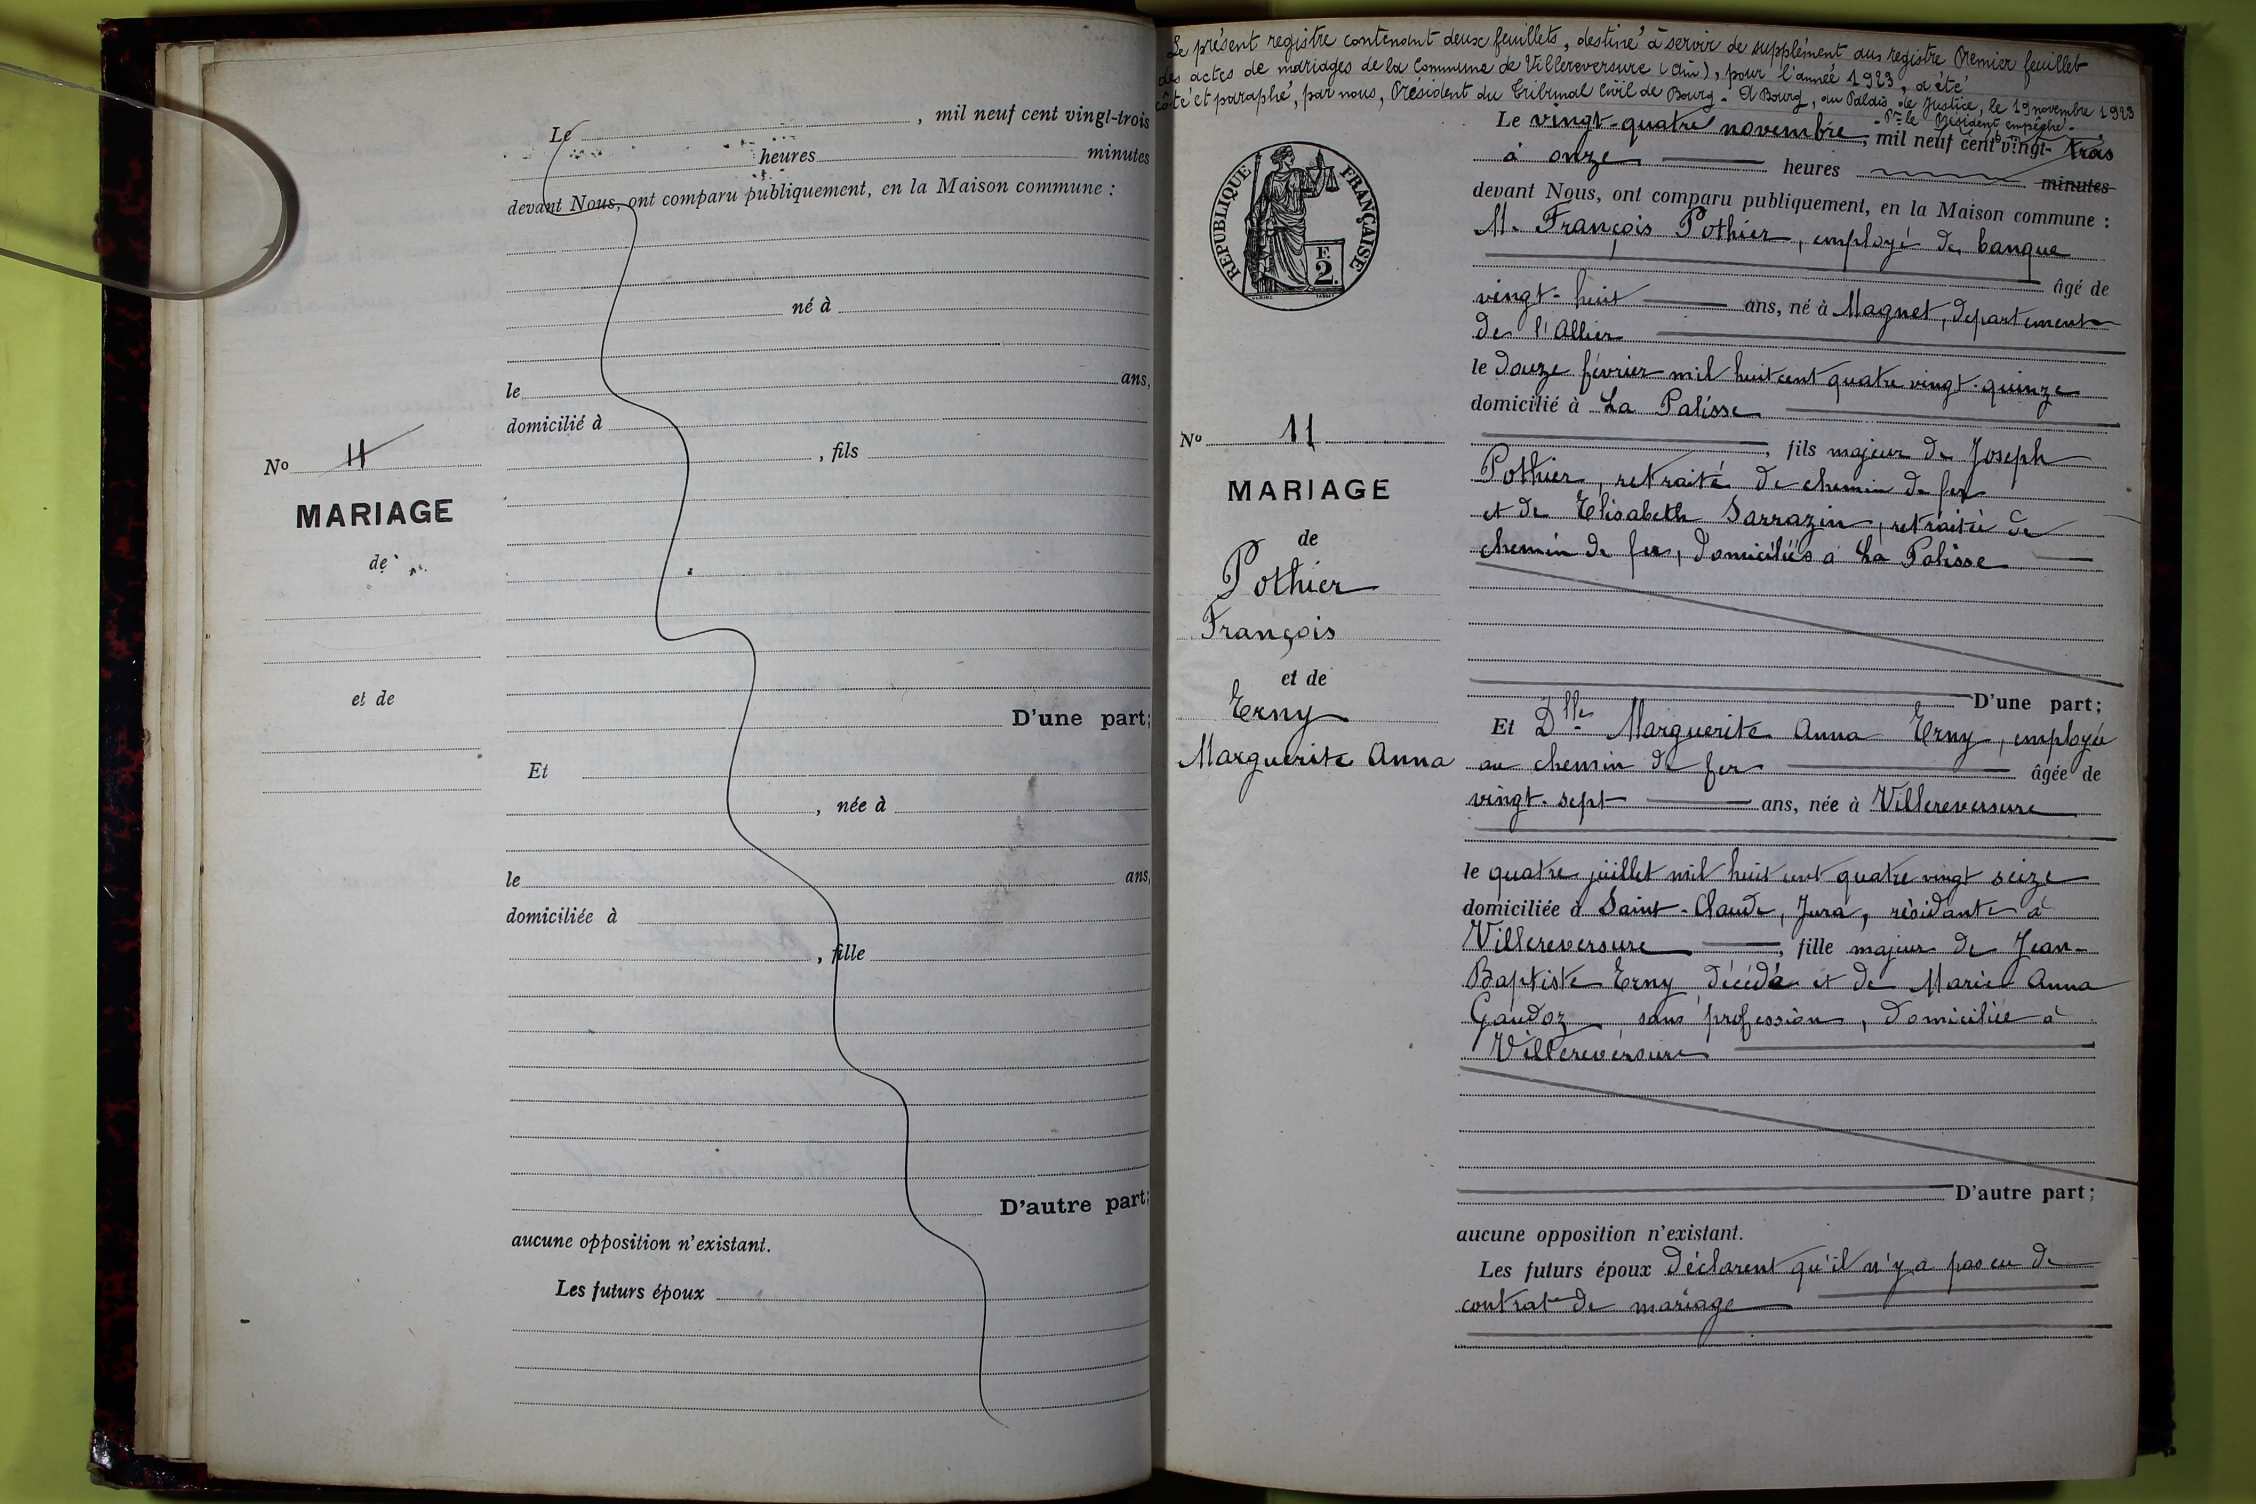 Le , mil neuf cent vingt-trois
heures minutes
devant Nous, ont comparu publiquement, en la Maison commune :
né à
le ans,
domicilié à
, fils
No 11
MARIAGE
de
et de
D'une part;
Et
, née à
le ans,
domiciliée à
, fille
D'autre part;
aucune opposition n'existant.
Les futurs époux
Le présent registre contenant deux feuillets, destiné à servir de supplément au registre Premier feuillet
des actes de mariages de la Commune de Villereversure (Ain), pour l'année 1923, a été
côté et paraphé, par nous, Président du Tribunal Civil de Bourg - A Bourg, au Palais de Justice, le 19 novembre 1923
Pr le Président empêché -
Le vingt-quatre novembre, mil neuf cent vingt-trois
à onze heures minutes
devant Nous, ont comparu publiquement, en la Maison commune :
M. François Pothier, employé de banque
âgé de
vingt-huit ans, né à Magnet, département
de l'Allier
le douze février mil huit cent quatre vingt-quinze
domicilié à La Palisse
, fils majeur de Joseph
Pothier, retraité de chemin de fer
et de Elisabeth Sarrazin, retraitée de
chemin de fer, domiciliés à La Palisse
D'une part;
Et Dlle Marguerite Anna Erny, employée
au chemin de fer âgée de
vingt-sept ans, née à Villereversure
le quatre juillet mil huit cent quatre vingt seize
domiciliée à Saint-Claude, Jura, résidante à
Villereversure, fille majeur de Jean-
Baptiste Erny décédé et de Marie Anna
Gaudoz, sans profession, domiciliée à
Villereversure
D'autre part;
aucune opposition n'existant.
Les futurs époux déclarent qu'il n'y a pas eu de
contrat de mariage
RÉPUBLIQUE FRANÇAISE
E
2.
No 11
MARIAGE
de
Pothier
François
et de
Erny
Marguerite Anna